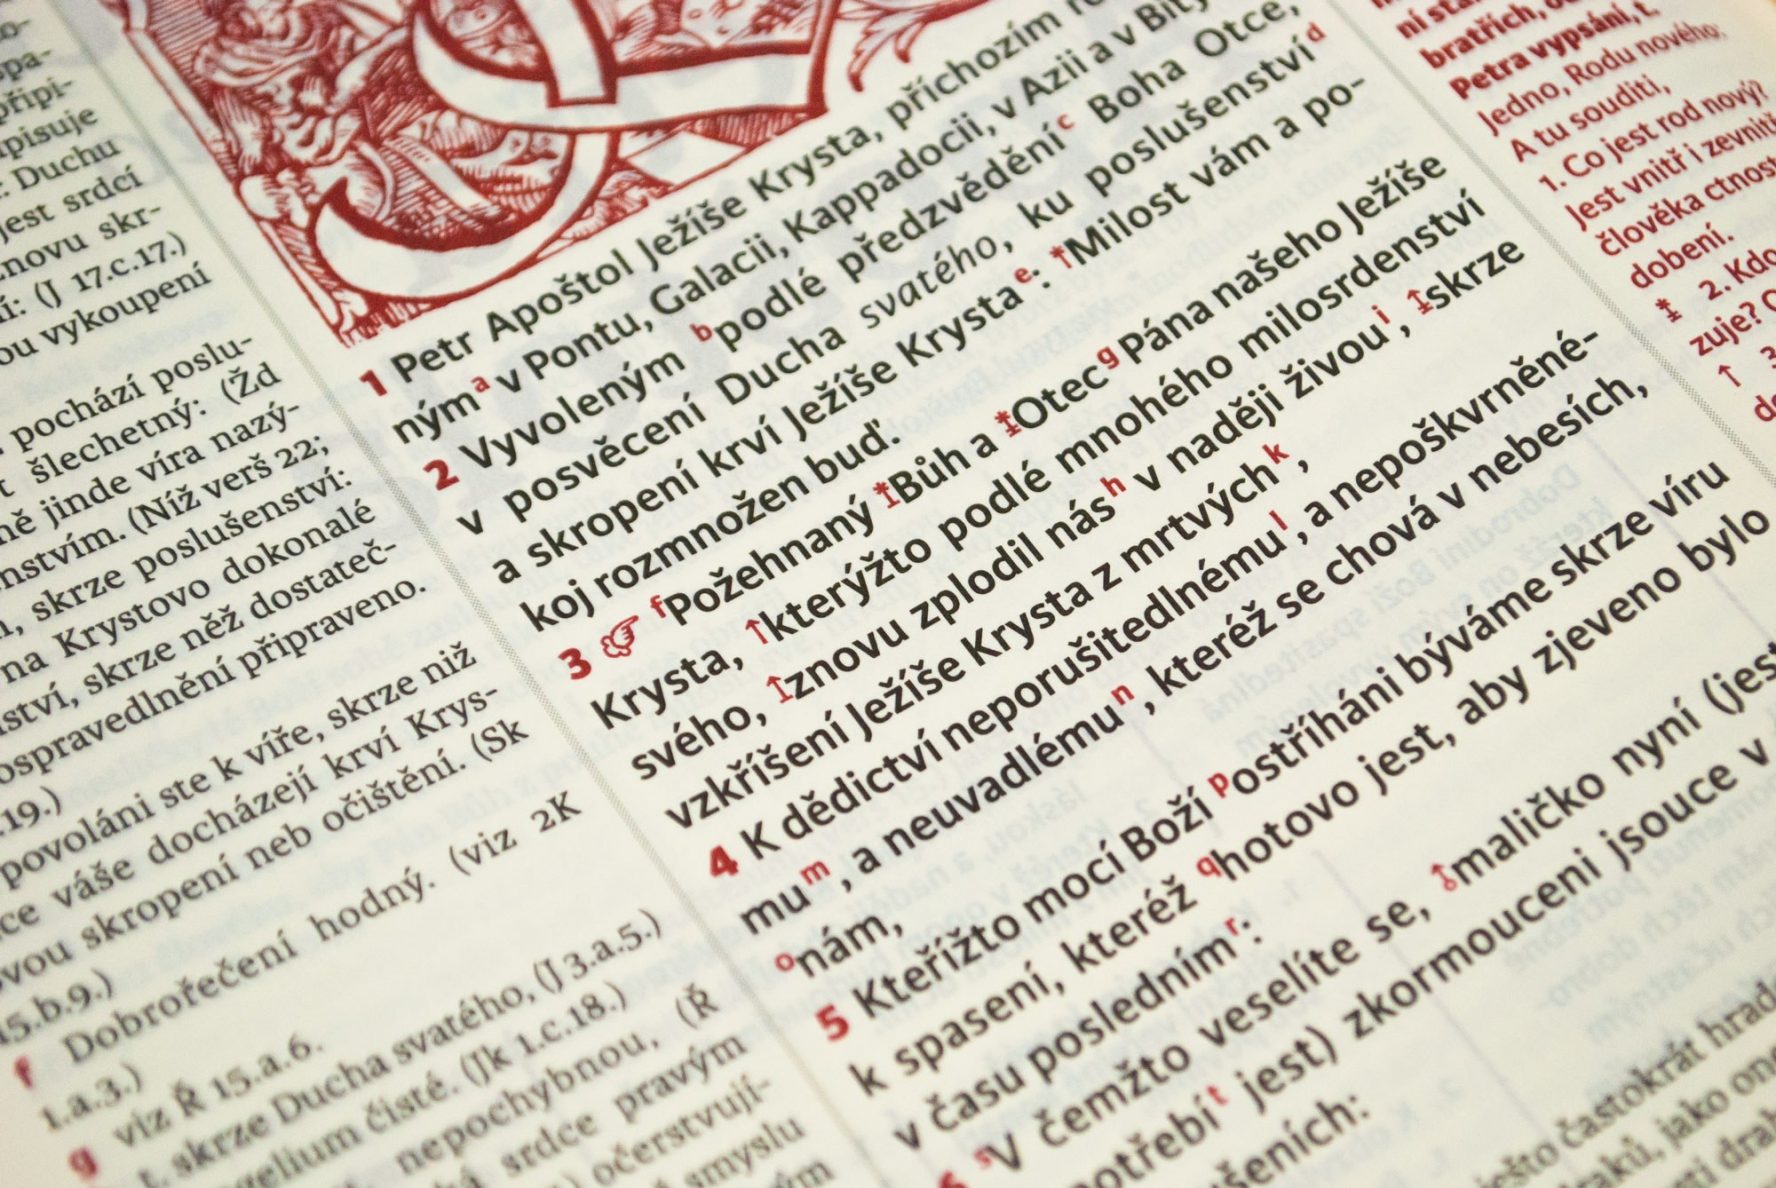 spa-
připi-
pisuje
: Duchu
jest srdcí
znovu skr-
(J 17.c.17.)
ou vykoupení
pochází poslu-
šlechetný: (Žd
ně jinde víra nazý-
enstvím. (Níž verš 22;
skrze poslušenství:
na Krystovo dokonalé
ství, skrze něž dostateč-
ospravedlnění připraveno.
.19.)
povoláni ste k víře, skrze niž
ce váše docházejí krví Krys-
ovou skropení neb očištění. (Sk
15.b.9.)
f Dobrořečení hodný. (viz 2K
1.a.3.)
g viz Ř 15.a.6.
t. skrze Ducha svatého, (J 3.a.5.)
gelium čisté. (Jk 1.c.18.)
nepochybnou, (Ř
srdce pravým
očerstvují-
smyslu
1 Petr Apoštol Ježíše Krysta, příchozím
ným a v Pontu, Galacii, Kappadocii, v Azii a v Bity
2 Vyvoleným b podlé předzvědění c Boha Otce,
v posvěcení Ducha svatého, ku poslušenství d
a skropení krví Ježíše Krysta e: †Milost vám a po-
koj rozmnožen buď.
3 ☞ f Požehnaný Bůh a Otec g Pána našeho Ježíše
Krysta, ↑kterýžto podlé mnohého milosrdenství
svého, znovu zplodil nás h v naději živou i, skrze
vzkříšení Ježíše Krysta z mrtvých k,
4 K dědictví neporušitedlnému l, a nepoškvrněné-
mu m, a neuvadlému n, kteréž se chová v nebesích,
o nám,
5 Kteřížto mocí Boží p ostříháni býváme skrze víru
k spasení, kteréž q hotovo jest, aby zjeveno bylo
v času posledním r:
6 s V čemžto veselíte se, maličko nyní (jest
potřebí t jest) zkormouceni jsouce v
šeních:
ní
bratřích,
Petra vypsání, t.
Jedno, Rodu nového:
A tu souditi,
1. Co jest rod nový?
Jest vnitř i zevnitř
člověka ctnost
dobení.
2. Kdo
zuje?
↑ 3
ješto častokrát
jako